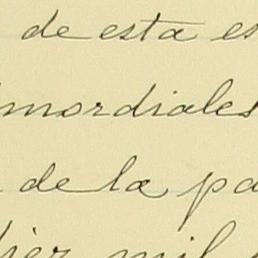 de esta es
mordiales
de la pa
mil